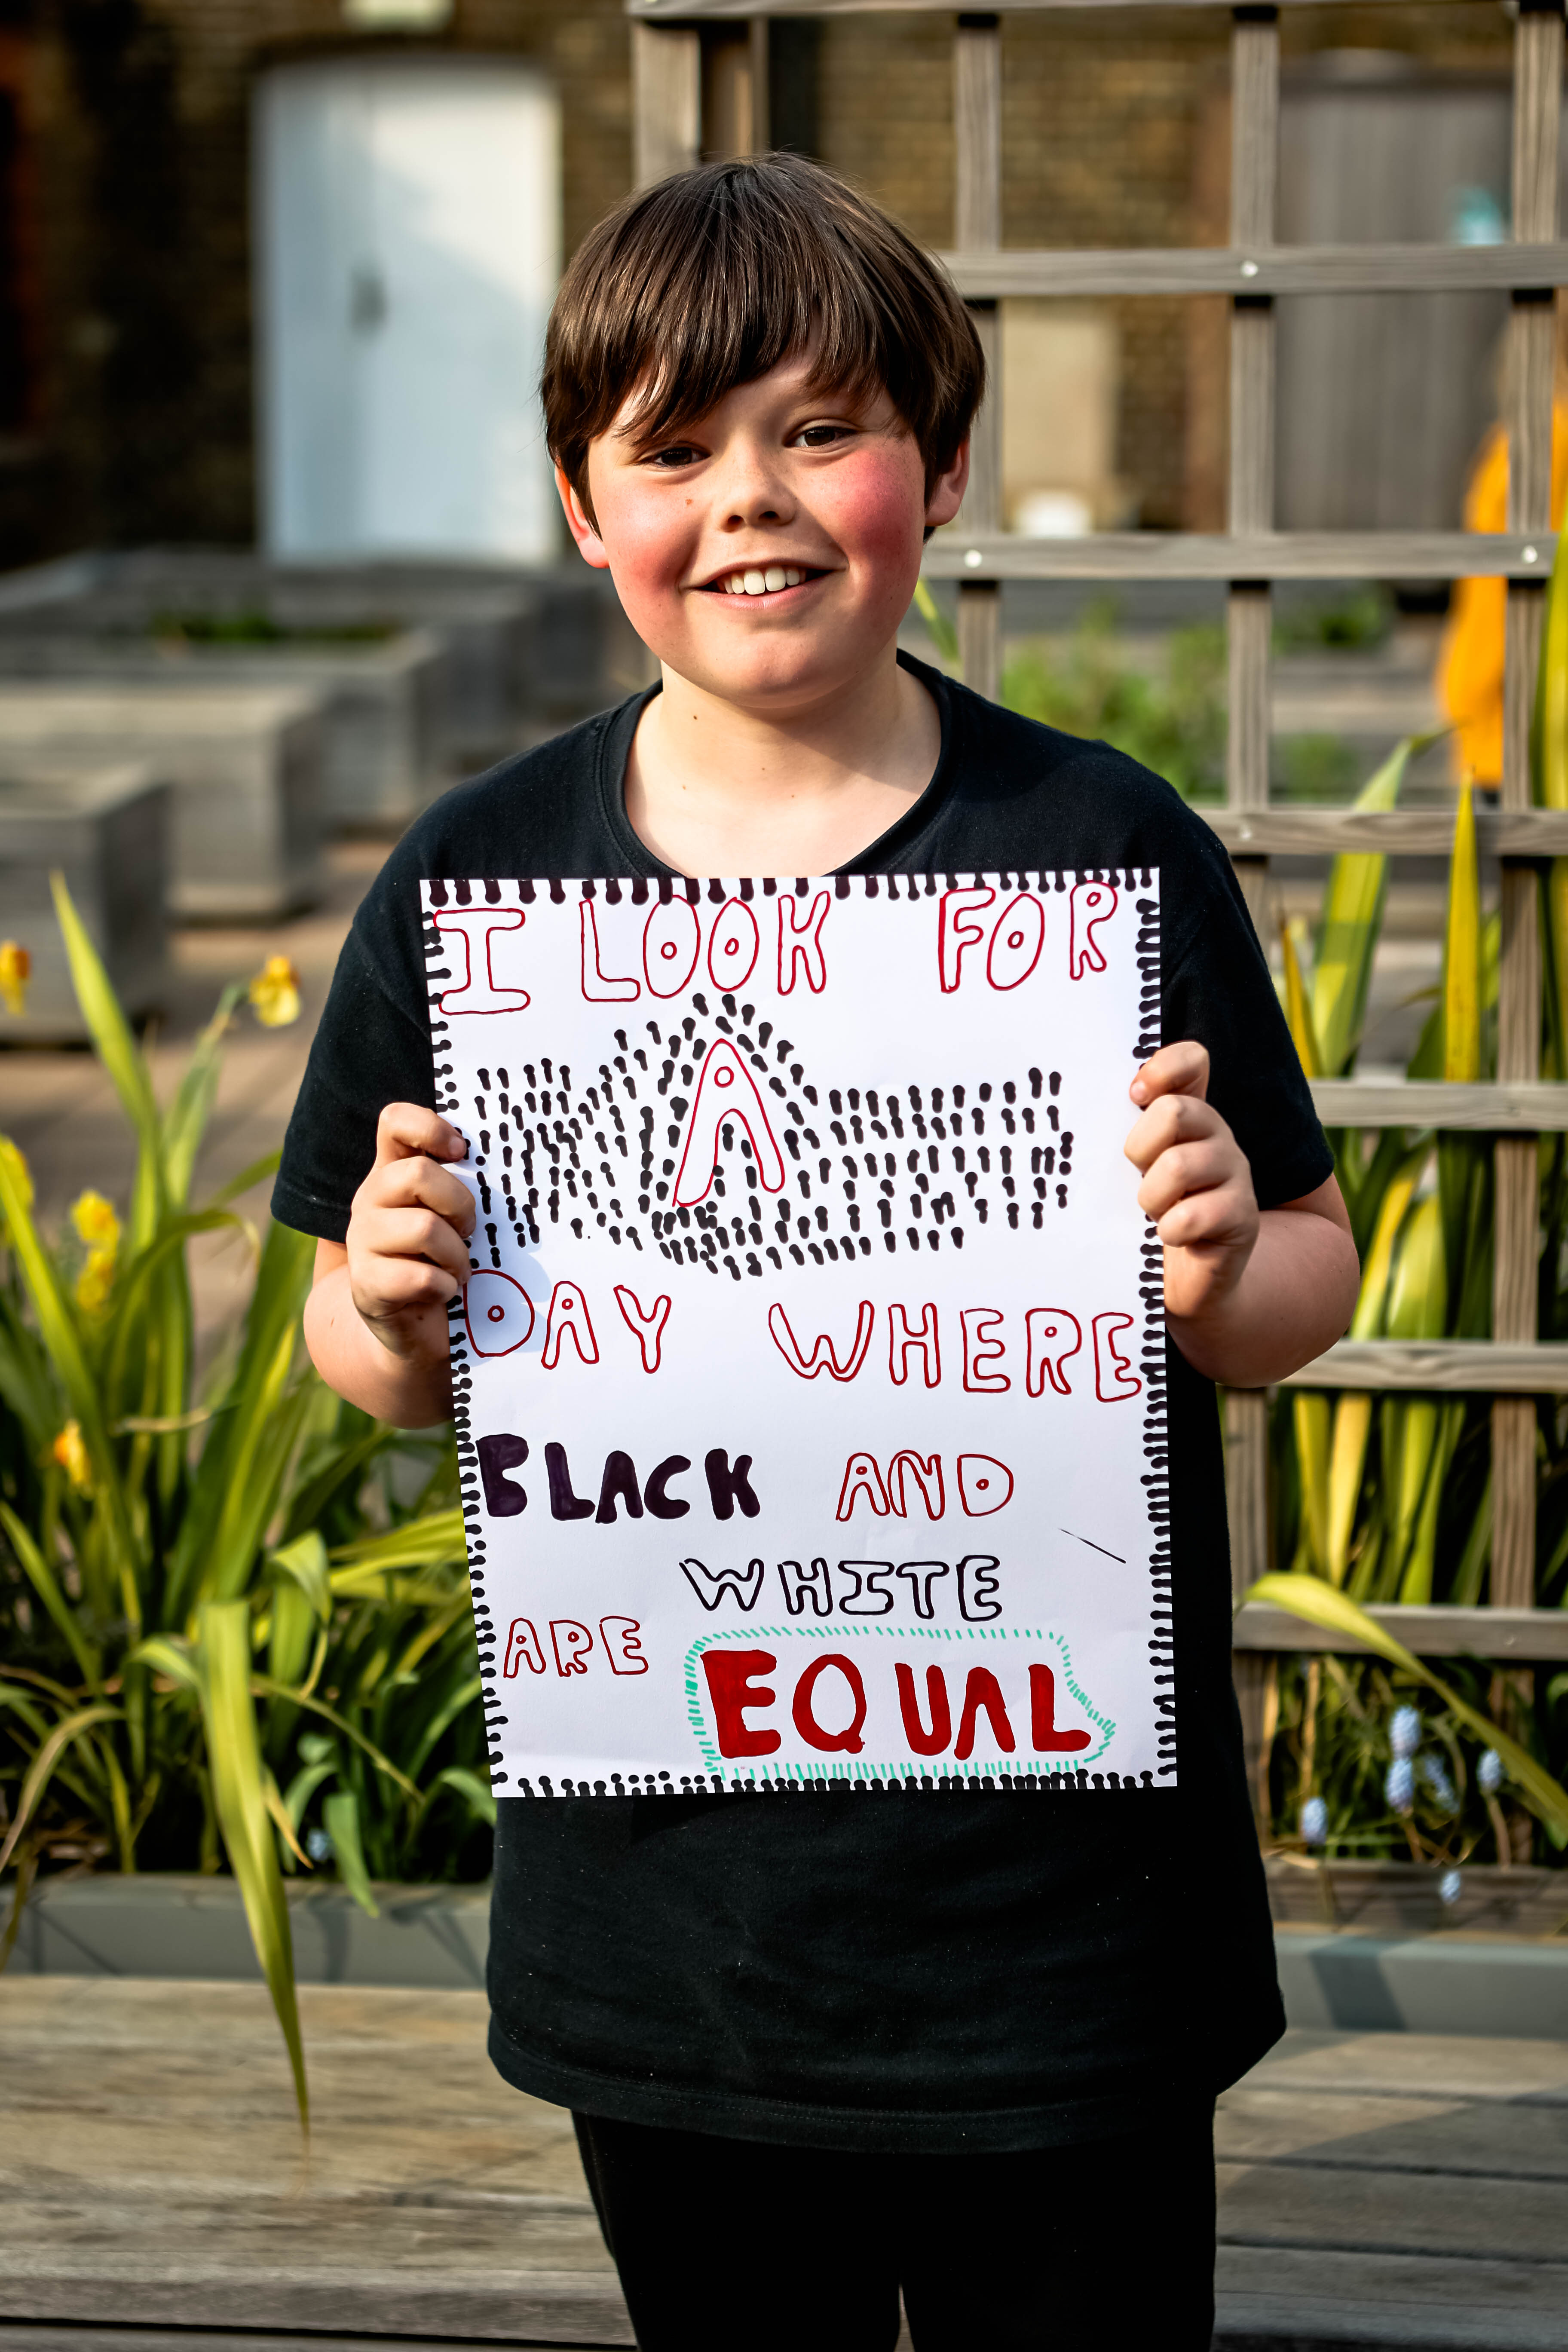 I LOOK FOR
A
DAY WHERE
BLACK AND
WHITE
ARE EQUAL